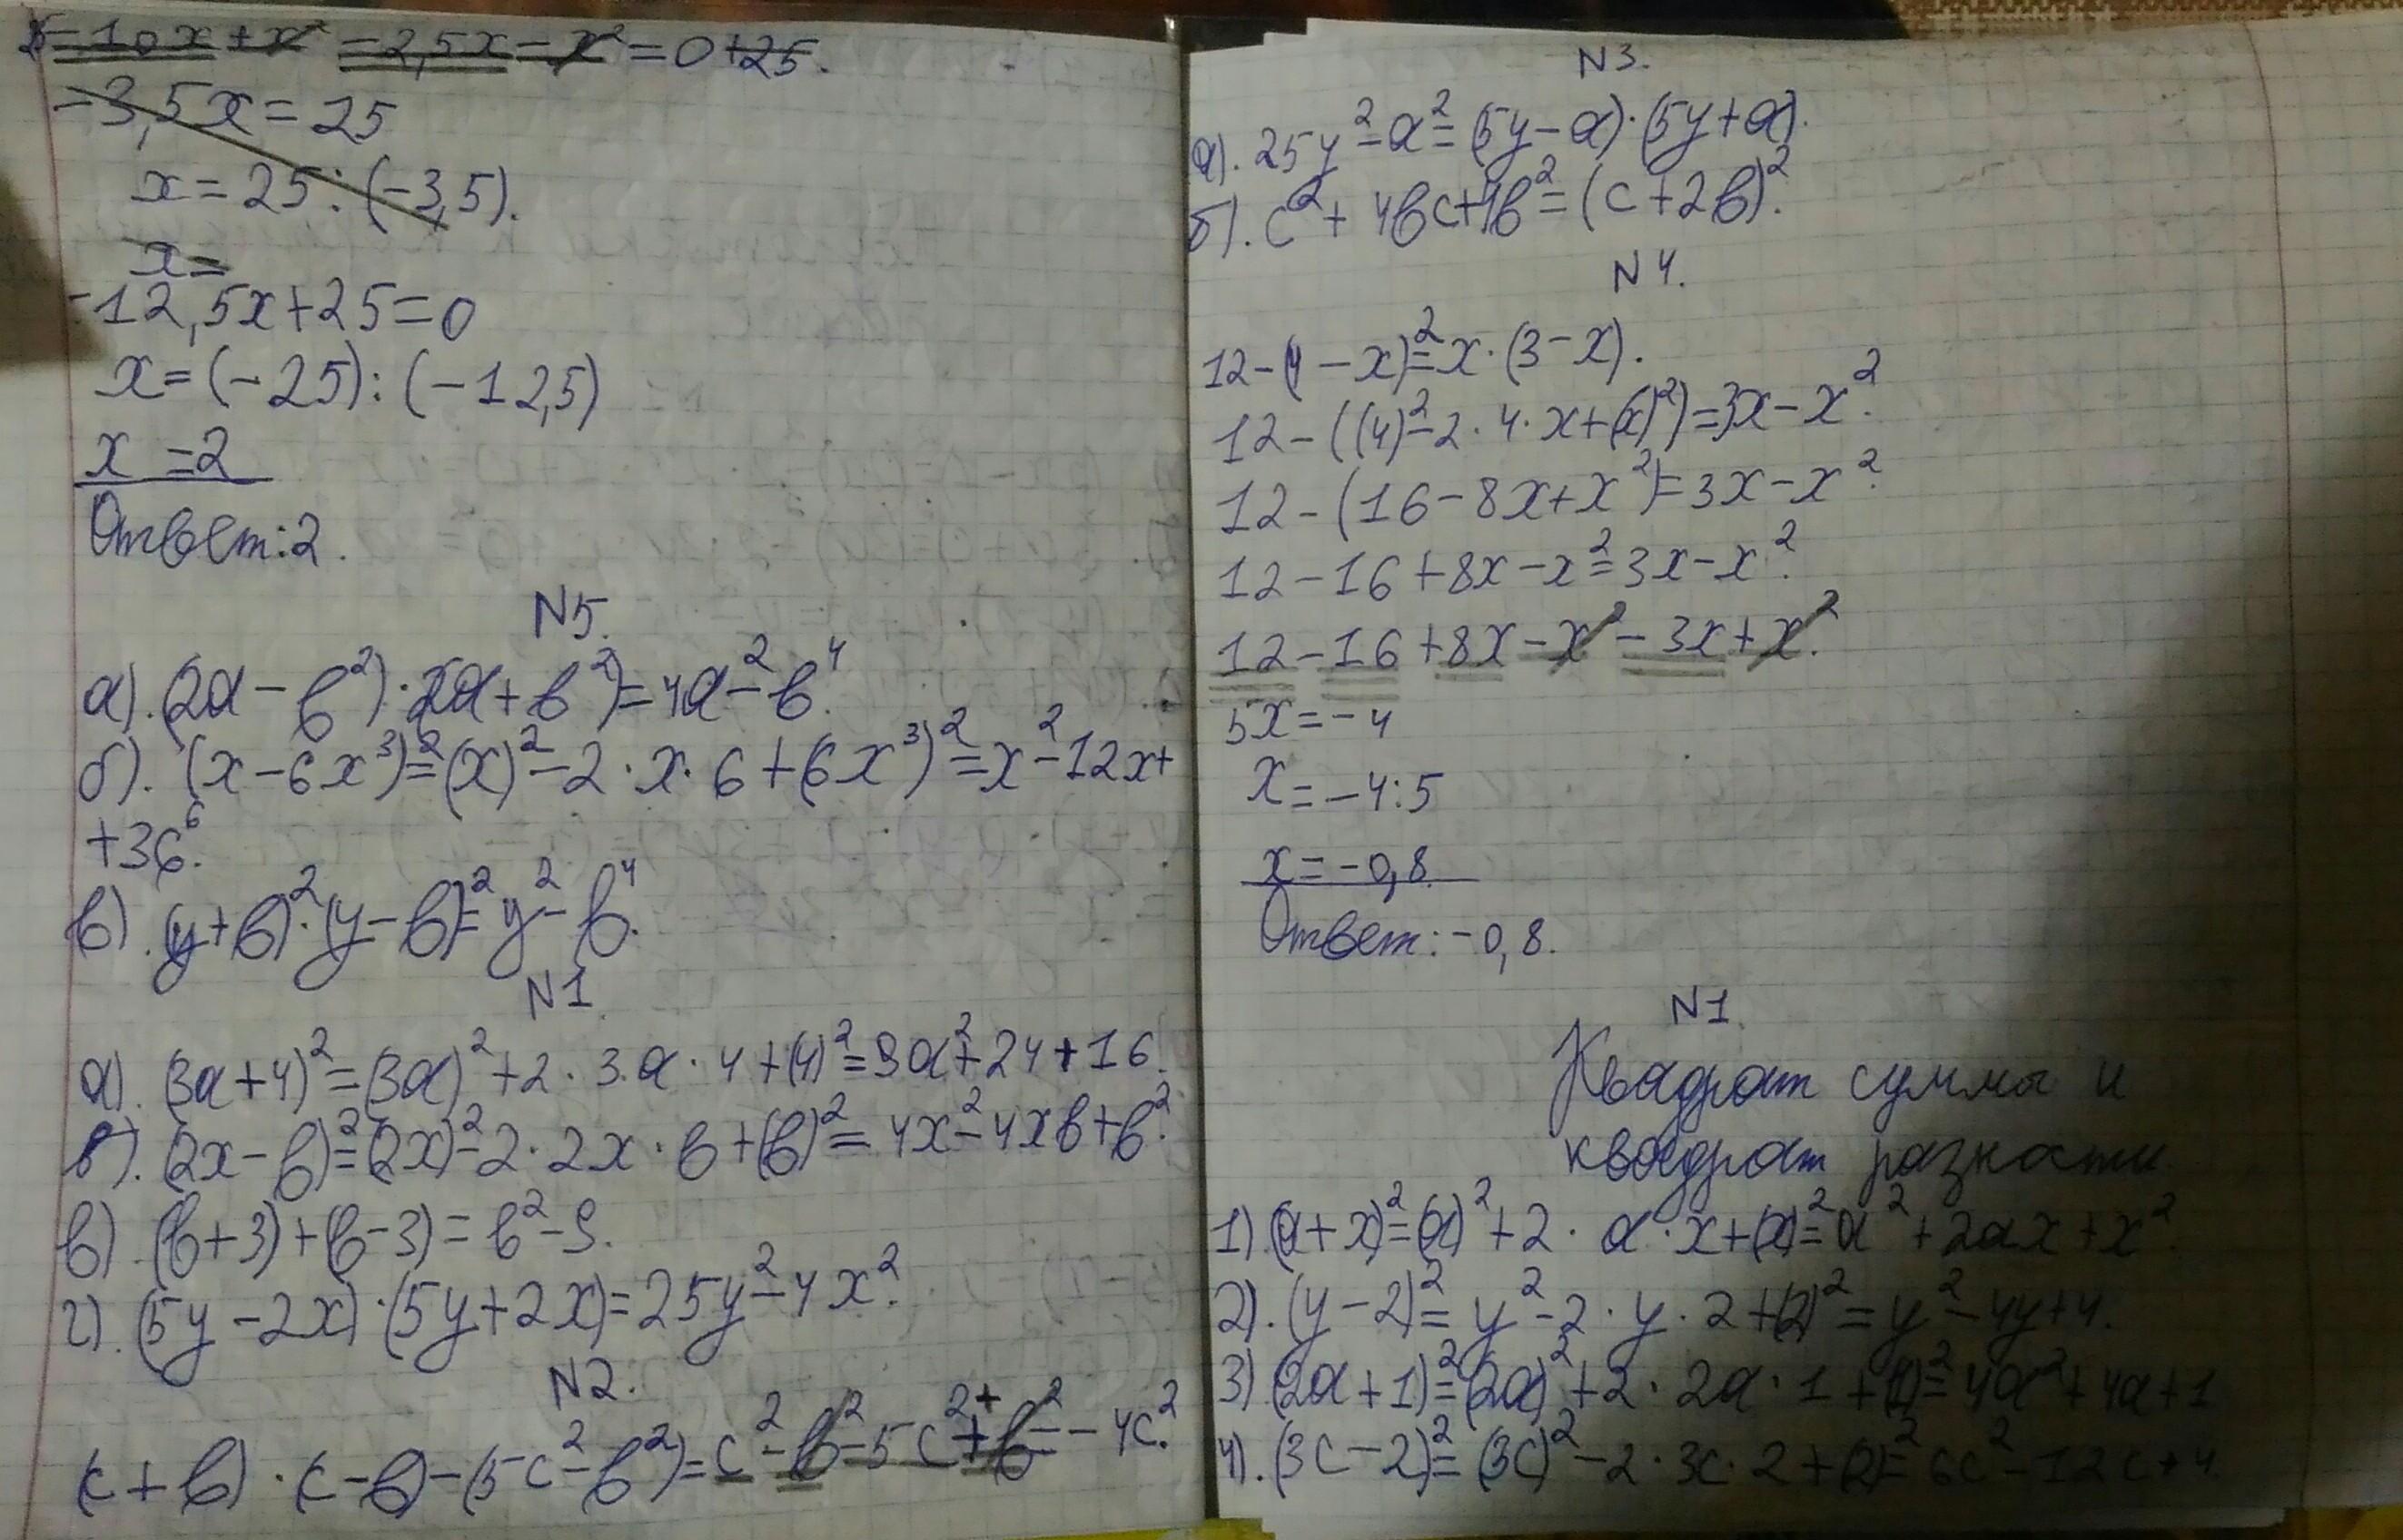 25-10x+x² -2,5x-x²=0+25.
-3,5x=25
x=25:(-3,5).
x=
-12,5x+25=0
x=(-25):(-12,5)
x=2
Ответ:2.
N5.
а). (2a-b²)·(2a+b²)=4a²-b⁴.
б). (x-6x³)²=(x)²-2·x·6+(6x³)²=x²-12x+
+36⁶.
в). (y+b)²·(y-b)²=y²-b⁴.
N1.
а). (3a+4)²=(3a)²+2·3a·4+(4)²=9a²+24+16.
б). (2x-b)²=(2x)²-2·2x·b+(b)²=4x²-4xb+b².
в). (b+3)+(b-3)=b²-9.
г). (5y-2x)·(5y+2x)=25y²-4x².
N2.
(c+b)·(c-b)-(5c²-b²)=c²-b²-5c²+b²=-4c².
N3.
а). 25y²-a²=(5y-a)·(5y+a).
б). c²+4bc+4b²=(c+2b)².
N4.
12-(4-x)²=x·(3-x).
12-((4)²-2·4·x+(x)²)=3x-x².
12-(16-8x+x²)=3x-x².
12-16+8x-x²=3x-x².
12-16+8x-x²-3x+x².
5x=-4
x=-4:5
x=-0,8.
Ответ:-0,8.
N1.
Квадрат суммы и
квадрат разности
1). (a+x)²=(a)²+2·a·x+(x)²=a²+2ax+x².
2). (y-2)²=y²-2·y·2+(2)²=y²-4y+4.
3) (2a+1)²=(2a)²+2·2a·1+(1)²=4a²+4a+1
4). (3c-2)²=(3c)²-2·3c·2+(2)²=6c²-12c+4.